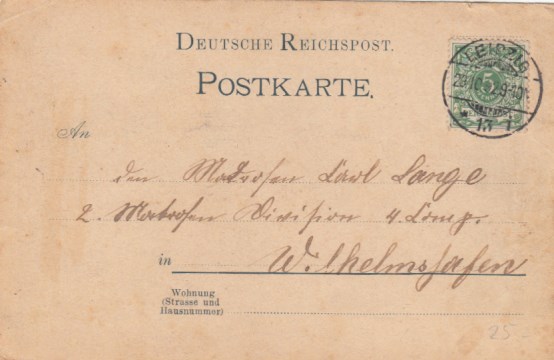 DEUTSCHE REICHSPOST.
POSTKARTE.
LEIPZIG
13
5
An
den Matrosen Carl Lange
2. Matrosen Division 4. Comp.
in Wilhelmshafen
Wohnung
(Strasse und
Hausnummer)
25.-